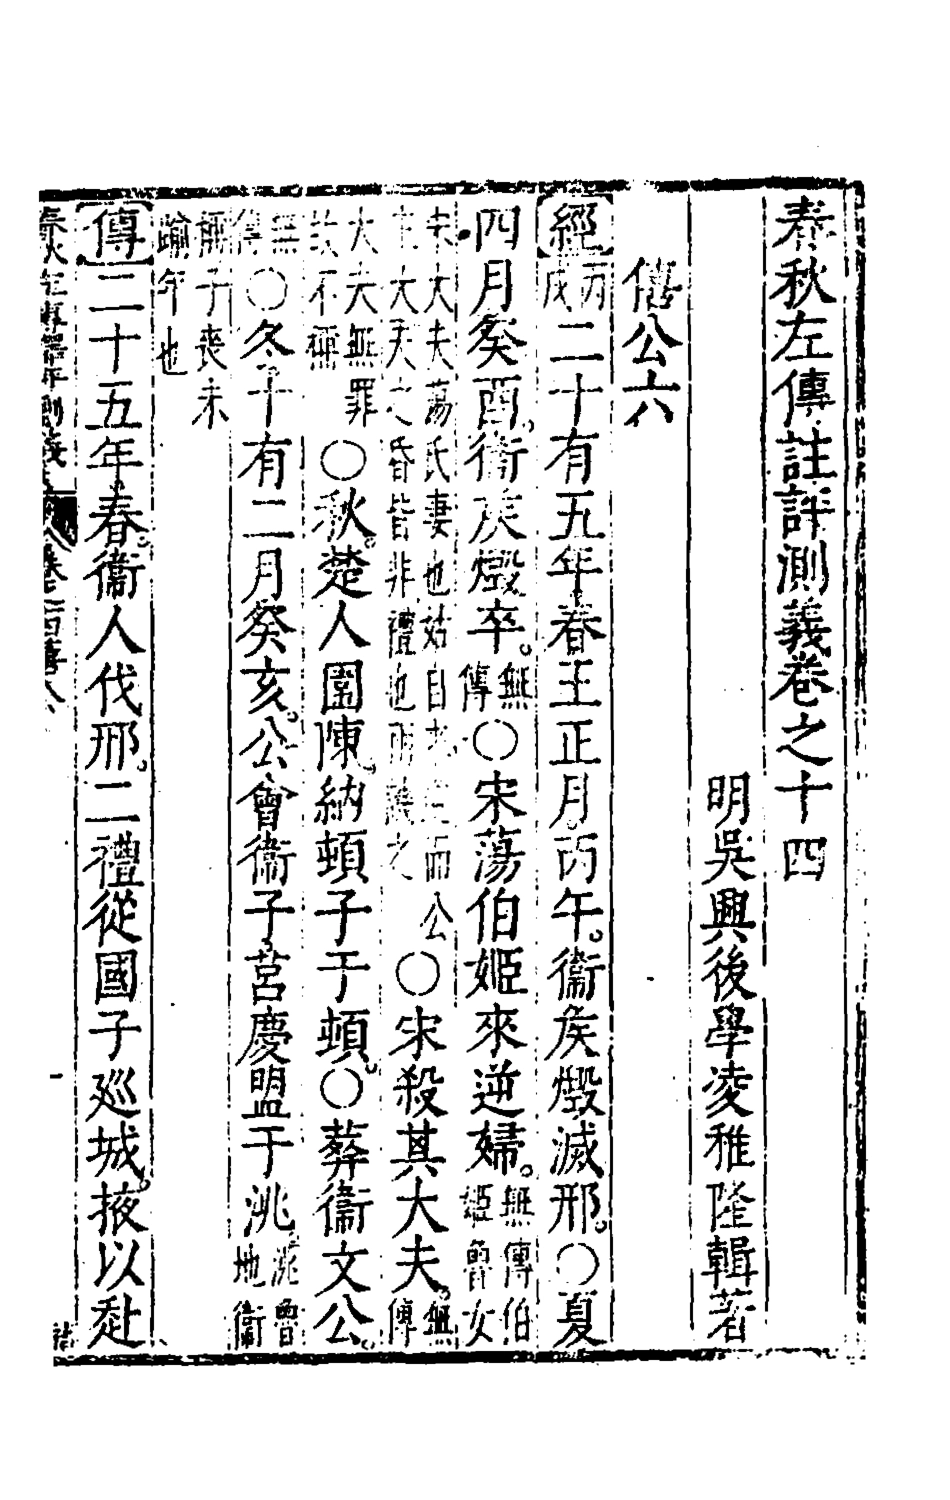 春秋左傳註評測義卷之十四
明吳興後學凌稚隆輯著
僖公六
經丙戌二十有五年春王正月丙午衛矦燬滅邢。〇夏
四月癸酉衛矦燬卒。無傳〇宋蕩伯姬來逆婦。無傳伯姬魯女
宋大夫蕩氏妻也姑自來逆而公主大夫之昏皆非禮也而譏之〇宋殺其大夫。無傳
大夫無罪故不稱〇秋楚人圍陳納頓子于頓。〇葬衛文公。
無傳〇冬十有二月癸亥公會衛子莒慶盟于洮洮魯地衛
稱子喪未踰年也
傳二十五年春衛人伐邢。二禮從國子廵城。掖以赴